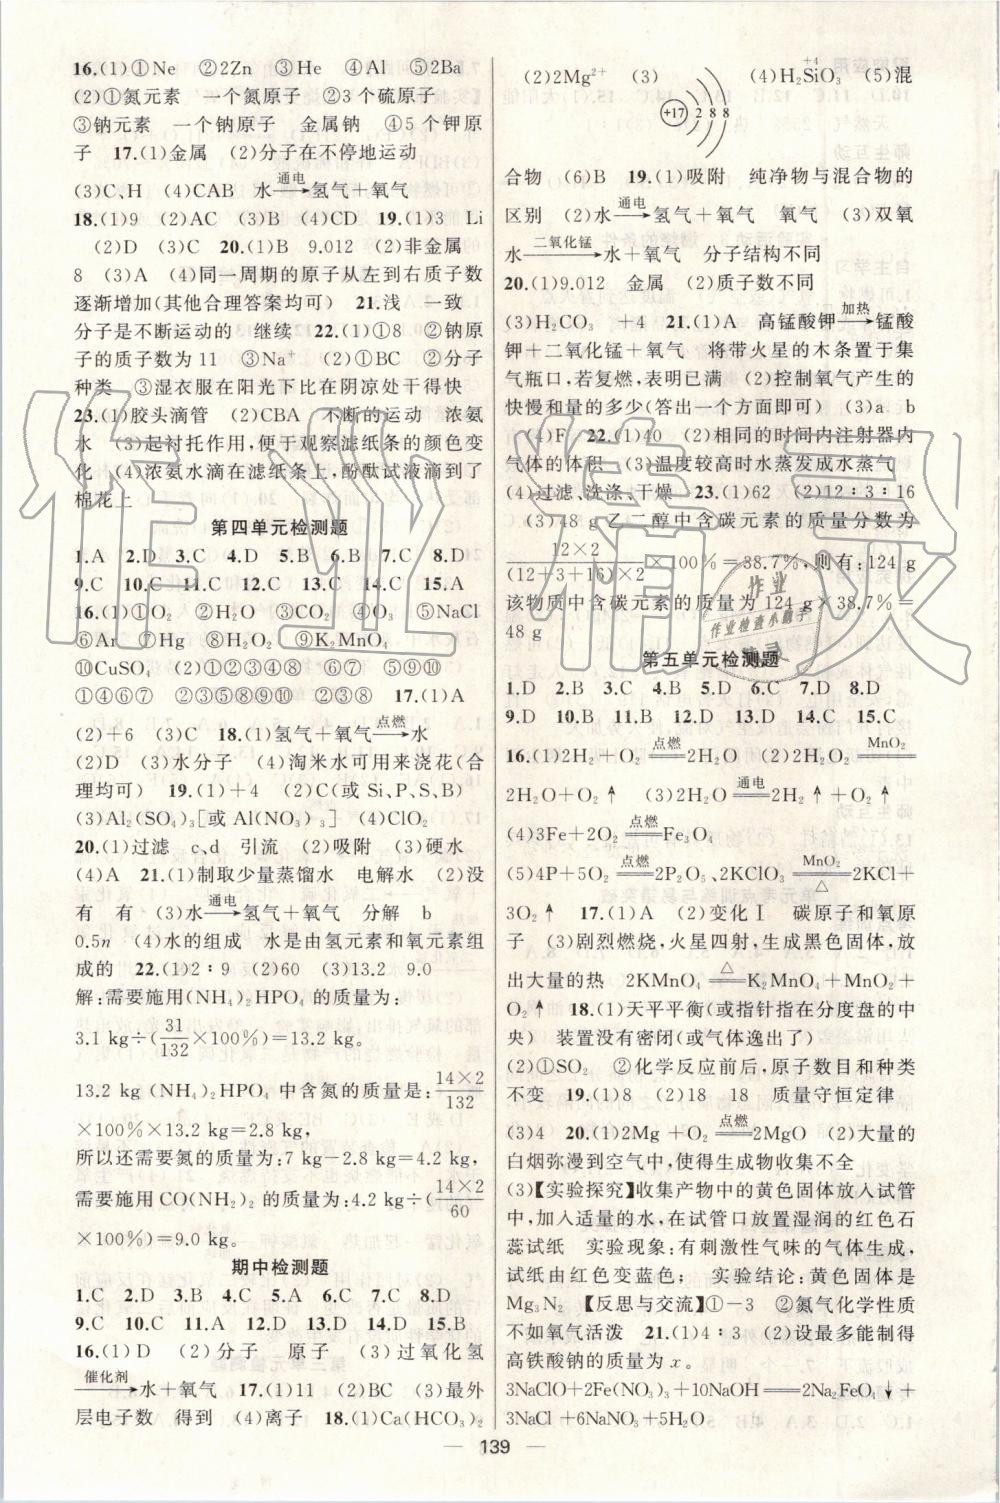 16.(1)①Ne ②2Zn ③He ④Al ⑤2Ba
(2)①氮元素 一个氮原子 ②3个硫原子
③钠元素 一个钠原子 金属钠 ④5个钾原
子 17.(1)金属 (2)分子在不停地运动
(3)C、H (4)CAB 水 通电→ 氢气+氧气
18.(1)9 (2)AC (3)B (4)CD 19.(1)3 Li
(2)D (3)C 20.(1)B 9.012 (2)非金属
8 (3)A (4)同一周期的原子从左到右质子数
逐渐增加(其他合理答案均可) 21.浅 一致
分子是不断运动的 继续 22.(1)①8 ②钠原
子的质子数为11 ③Na⁺ (2)①BC ②分子
种类 ③湿衣服在阳光下比在阴凉处干得快
23.(1)胶头滴管 (2)CBA 不断的运动 浓氨
水 (3)起衬托作用,便于观察滤纸条的颜色变
化 (4)浓氨水滴在滤纸条上,酚酞试液滴到了
棉花上
第四单元检测题
1.A 2.D 3.C 4.D 5.B 6.B 7.C 8.D
9.C 10.C 11.C 12.C 13.C 14.C 15.A
16.(1)①O₂ ②H₂O ③CO₂ ④O₃ ⑤NaCl
⑥Ar ⑦Hg ⑧H₂O₂ ⑨K₂MnO₄
⑩CuSO₄ (2)①②③④⑧ ⑥⑦ ⑤⑨⑩
①④⑥⑦ ②③⑤⑧⑨⑩ ②③⑧ 17.(1)A
(2)+6 (3)C 18.(1)氢气+氧气 点燃→ 水
(2)D (3)水分子 (4)淘米水可用来浇花(合
理均可) 19.(1)+4 (2)C(或Si、P、S、B)
(3)Al₂(SO₄)₃[或Al(NO₃)₃] (4)ClO₂
20.(1)过滤 c、d 引流 (2)吸附 (3)硬水
(4)A 21.(1)制取少量蒸馏水 电解水 (2)没
有 有 (3)水 通电→ 氢气+氧气 分解 b
0.5n (4)水的组成 水是由氢元素和氧元素组
成的 22.(1)2:9 (2)60 (3)13.2 9.0
解:需要施用(NH₄)₂HPO₄的质量为:
3.1 kg÷(31/132×100%)=13.2 kg。
13.2 kg (NH₄)₂HPO₄中含氮的质量是:14×2/132
×100%×13.2 kg=2.8 kg,
所以还需要氮的质量为:7 kg-2.8 kg=4.2 kg,
需要施用CO(NH₂)₂的质量为:4.2 kg÷(14×2/60
×100%)=9.0 kg。
期中检测题
1.C 2.D 3.B 4.C 5.A 6.C 7.C 8.D
9.C 10.C 11.A 12.D 13.D 14.D 15.B
16.(1)D (2)分子 原子 (3)过氧化氢
催化剂→ 水+氧气 17.(1)11 (2)BC (3)最外
层电子数 得到 (4)离子 18.(1)Ca(HCO₃)₂
(2)2Mg²⁺ (3) +17 2 8 8 (4)H₂Si⁺⁴O₃ (5)混
合物 (6)B 19.(1)吸附 纯净物与混合物的
区别 (2)水 通电→ 氢气+氧气 氧气 (3)双氧
水 二氧化锰→ 水+氧气 分子结构不同
20.(1)9.012 金属 (2)质子数不同
(3)H₂CO₃ +4 21.(1)A 高锰酸钾 加热→ 锰酸
钾+二氧化锰+氧气 将带火星的木条置于集
气瓶口,若复燃,表明已满 (2)控制氧气产生的
快慢和量的多少(答出一个方面即可) (3)a b
(4)F 22.(1)40 (2)相同的时间内注射器内
气体的体积 (3)温度较高时水蒸发成水蒸气
(4)过滤、洗涤、干燥 23.(1)62 (2)12:3:16
(3)48 g乙二醇中含碳元素的质量分数为
12×2/(12+3+16)×2×100%=38.7%,则有:124 g
该物质中含碳元素的质量为124 g×38.7%=
48 g
第五单元检测题
1.D 2.B 3.C 4.B 5.D 6.C 7.D 8.D
9.D 10.B 11.B 12.D 13.D 14.C 15.C
16.(1)2H₂+O₂ 点燃═ 2H₂O (2)2H₂O₂ MnO₂═
2H₂O+O₂↑ (3)2H₂O 通电═ 2H₂↑+O₂↑
(4)3Fe+2O₂ 点燃═ Fe₃O₄
(5)4P+5O₂ 点燃═ 2P₂O₅、2KClO₃ MnO₂═△ 2KCl+
3O₂↑ 17.(1)A (2)变化Ⅰ 碳原子和氧原
子 (3)剧烈燃烧,火星四射,生成黑色固体,放
出大量的热 2KMnO₄ △═ K₂MnO₄+MnO₂+
O₂↑ 18.(1)天平平衡(或指针指在分度盘的中
央) 装置没有密闭(或气体逸出了)
(2)①SO₂ ②化学反应前后,原子数目和种类
不变 19.(1)8 (2)18 18 质量守恒定律
(3)4 20.(1)2Mg+O₂ 点燃═ 2MgO (2)大量的
白烟弥漫到空气中,使得生成物收集不全
(3)【实验探究】收集产物中的黄色固体放入试管
中,加入适量的水,在试管口放置湿润的红色石
蕊试纸 实验现象:有刺激性气味的气体生成,
试纸由红色变蓝色; 实验结论:黄色固体是
Mg₃N₂ 【反思与交流】①-3 ②氮气化学性质
不如氧气活泼 21.(1)4:3 (2)设最多能制得
高铁酸钠的质量为x。
3NaClO+2Fe(NO₃)₃+10NaOH═2Na₂FeO₄↓+
3NaCl+6NaNO₃+5H₂O
139
作业精灵
作业
作业检查小助手
精灵